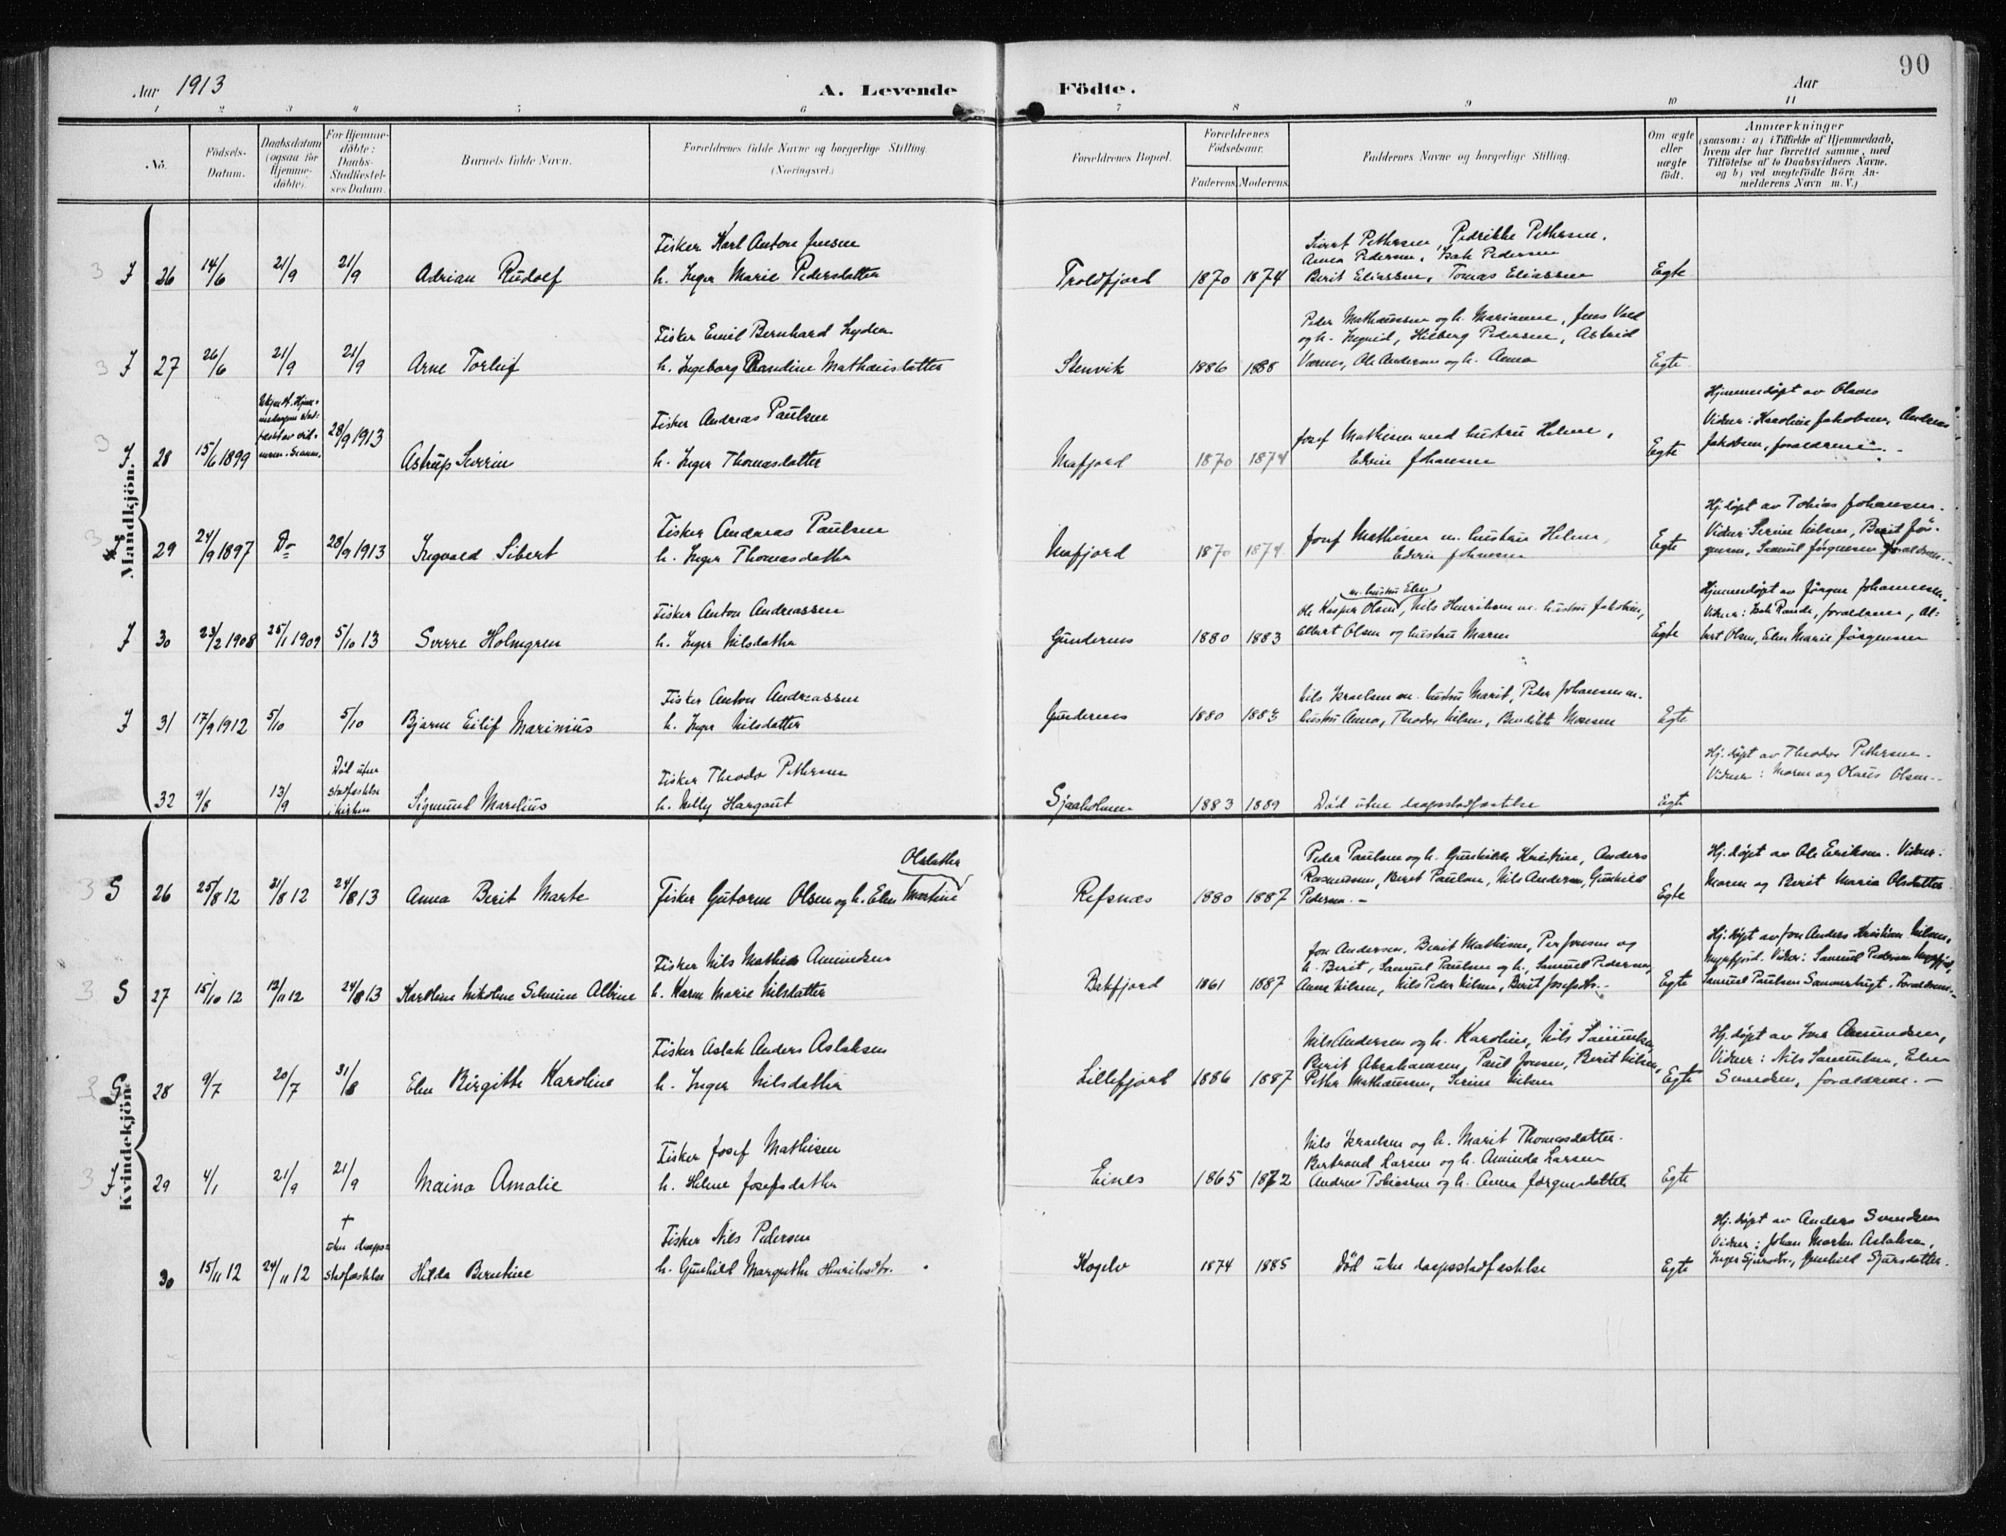 90
Aar 1913
A. Levende Födte.
Aar
1 2 3 4 5 6 7 8 9 10 11
No.
Födsels-Datum.
Daabsdatum (ogsaa for Hjemme-döbte).
For Hjemme-döbte: Daabs-Stadfæstel-ses Datum.
Barnets fulde Navn.
Forældrenes fulde Navne og borgerlige Stilling. (Næringsvei.)
Forældrenes Bopæl.
Forældrenes Födselsaar.
Faderens. Moderens.
Faddernes Navne og borgerlige Stilling.
Om ægte eller uægte født.
Anmærkninger
(saasom: a) i Tilfælde af Hjemmedaab, hvem der har forrettet samme, med Tilföielse af to Daabsvidners Navne, og b) ved uægtefödte Börn Anmelderens Navn m. V.)
Mandkjön.
J 26 14/6 21/9 21/9 Adrian Rudolf
Fisker Karl Anton Jensen
h. Inger Marie Pedersdatter
Troldfjord 1870 1874
Sivert Pettersen, Pedrikke Pettersen.
Anna Pedersen, Isak Pedersen
Berit Eliassen, Tomas Eliassen
Egte
J 27 26/6 21/9 21/9 Arne Torleif
Fisker Emil Bernhard Lyder
h. Ingeborg Randine Mathæusdatter
Stenvik 1886 1888
Peder Mathæussen og h. Marianne, Jens
og h. Ingrid, Hilberg Pedersen, Astrid
Værnes, Ole Andersen og h. Anna
Egte
J 28 15/6 1899
28/9 1913 Astrup Severin
Fisker Andreas Paulsen
h. Inger Thomasdatter
Mafjord 1870 1874
Josef Mathisen med hustru Helene,
Edvin Johansen
Egte
Hjemmedøpt av Olaus
Vidner: Karoline Jakobsen, Andreas
Jakobsen, forældrene.-
J 29 24/9 1897 Do 28/9 1913 Ingvald Sibert
Fisker Andreas Paulsen
h. Inger Thomasdatter
Mafjord 1870 1874
Josef Mathisen m. hustru Helene,
Edvin Johansen
Egte
Hj.døpt av Tobias Johansen.
Vidner Serine Nilsen, Berit Jør-
gensen, Samuel Jørgensen, forældrene.-
J 30 23/2 1908 25/1 1909 5/10 13 Sverre Holmgren
Fisker Anton Andreassen
h. Inger Nilsdatter
Gundernes 1880 1883
m. hustru Elen
Ole Kasper Olsen, Nils Henriksen m. hustru Jakobine,
Albert Olsen og hustru Maren
Egte
Hjemmedøpt av Jørgen Johannesen.
Vidner: Isak Rande, forældrene, Al-
bert Olsen, Elen Marie Jørgensen
J 31 17/9 1912 5/10 5/10 Bjarne Eilif Marinius
Fisker Anton Andreassen
h. Inger Nilsdatter
Gundernes 1880 1883
Nils Israelsen m. hustru Marit, Peder Johansen m.
hustru Anna, Theodor Nilsen, Bendikte Monsen
Egte
32 9/8 13/9
Død uten
stadfæstelse
i kirken
Sigmund Marelius
Fisker Theodor Pettersen
h. Nelly Hargaut
Sjaaholmen 1883 1889
Død uten daapsstadfæstelse
Egte
Hj. døpt av Theodor Pettersen.
Vidner: Maren og Olaus Olsen.-
Kvindekjön.
S 26 25/8 12 21/8 12 24/8 13 Anna Berit Marte
Olsdatter
Fisker Gutorm Olsen og h. Elen Martine
Refsnæs 1880 1887
Peder Paulsen og h. Gunhilde Kristine, Anders
Rasmussen, Berit Paulsen, Nils Andersen, Gunhild
Pedersen.-
Egte
Hj. døpt av Ole Eriksen. Vidner:
Maren og Berit Maria Olsdatter.
S 27 15/10 12 12/11 12 24/8 13 Karthine Nikoline Selmine Albine
Fisker Nils Mathis Amundsen
h. Karen Marie Nilsdatter
Bakfjord 1861 1887
Jon Andersen, Berit Mathisen, Per Jonsen og
h. Berit, Samuel Paulsen og h., Samuel Pedersen,
Anne Nilsen, Nils Peder Nilsen, Berit Josefsdtr.-
Egte
Hj. døpt av Jon Anders Kristian Nilsen,
Myrfjord. Vidner: Samuel Pedersen Myrfjord,
Samuel Paulsen Sammerbugt. Forældrene.-
S 28 9/7 20/7 31/8 Elen Birgitte Karoline
Fisker Aslak Anders Aslaksen
h. Inger Nilsdatter
Lillefjord 1886 1887
Nils Andersen og h. Karoline, Nils Samuelsen
Berit Abrahamsen, Paul Jonsen, Berit Nilsen,
Petter Mathæussen, Serine Nilsen
Egte
Hj. døpt av Amundsen,
Vidner: Nils Samuelsen, Elen
Svendsen, forældrene.-
J 29 4/1 21/9 21/9 Maina Amalie
Fisker Josef Mathisen
h. Helene Josefsdatter
Eines 1865 1872
Nils Israelsen og h. Marit Thomasdatter.
Bertrand Larsen og h. Aminda Larsen
Andreas Tobiassen og h. Anna Jørgensdatter
Egte
30 15/11 12 24/11 12
†
uten daaps-
stadfæstelse
Hilda Berntine
Fisker Nils Pedersen
h. Gunhild Margrethe Henriksdtr.
Kogelv 1874 1885
Død uten daapsstadfæstelse
Egte
Hj. døpt av Anders Svendsen
Vidner: Johan Morten Aslaksen,
Inger Sjursdtr., Gunhild Sjursdatter.